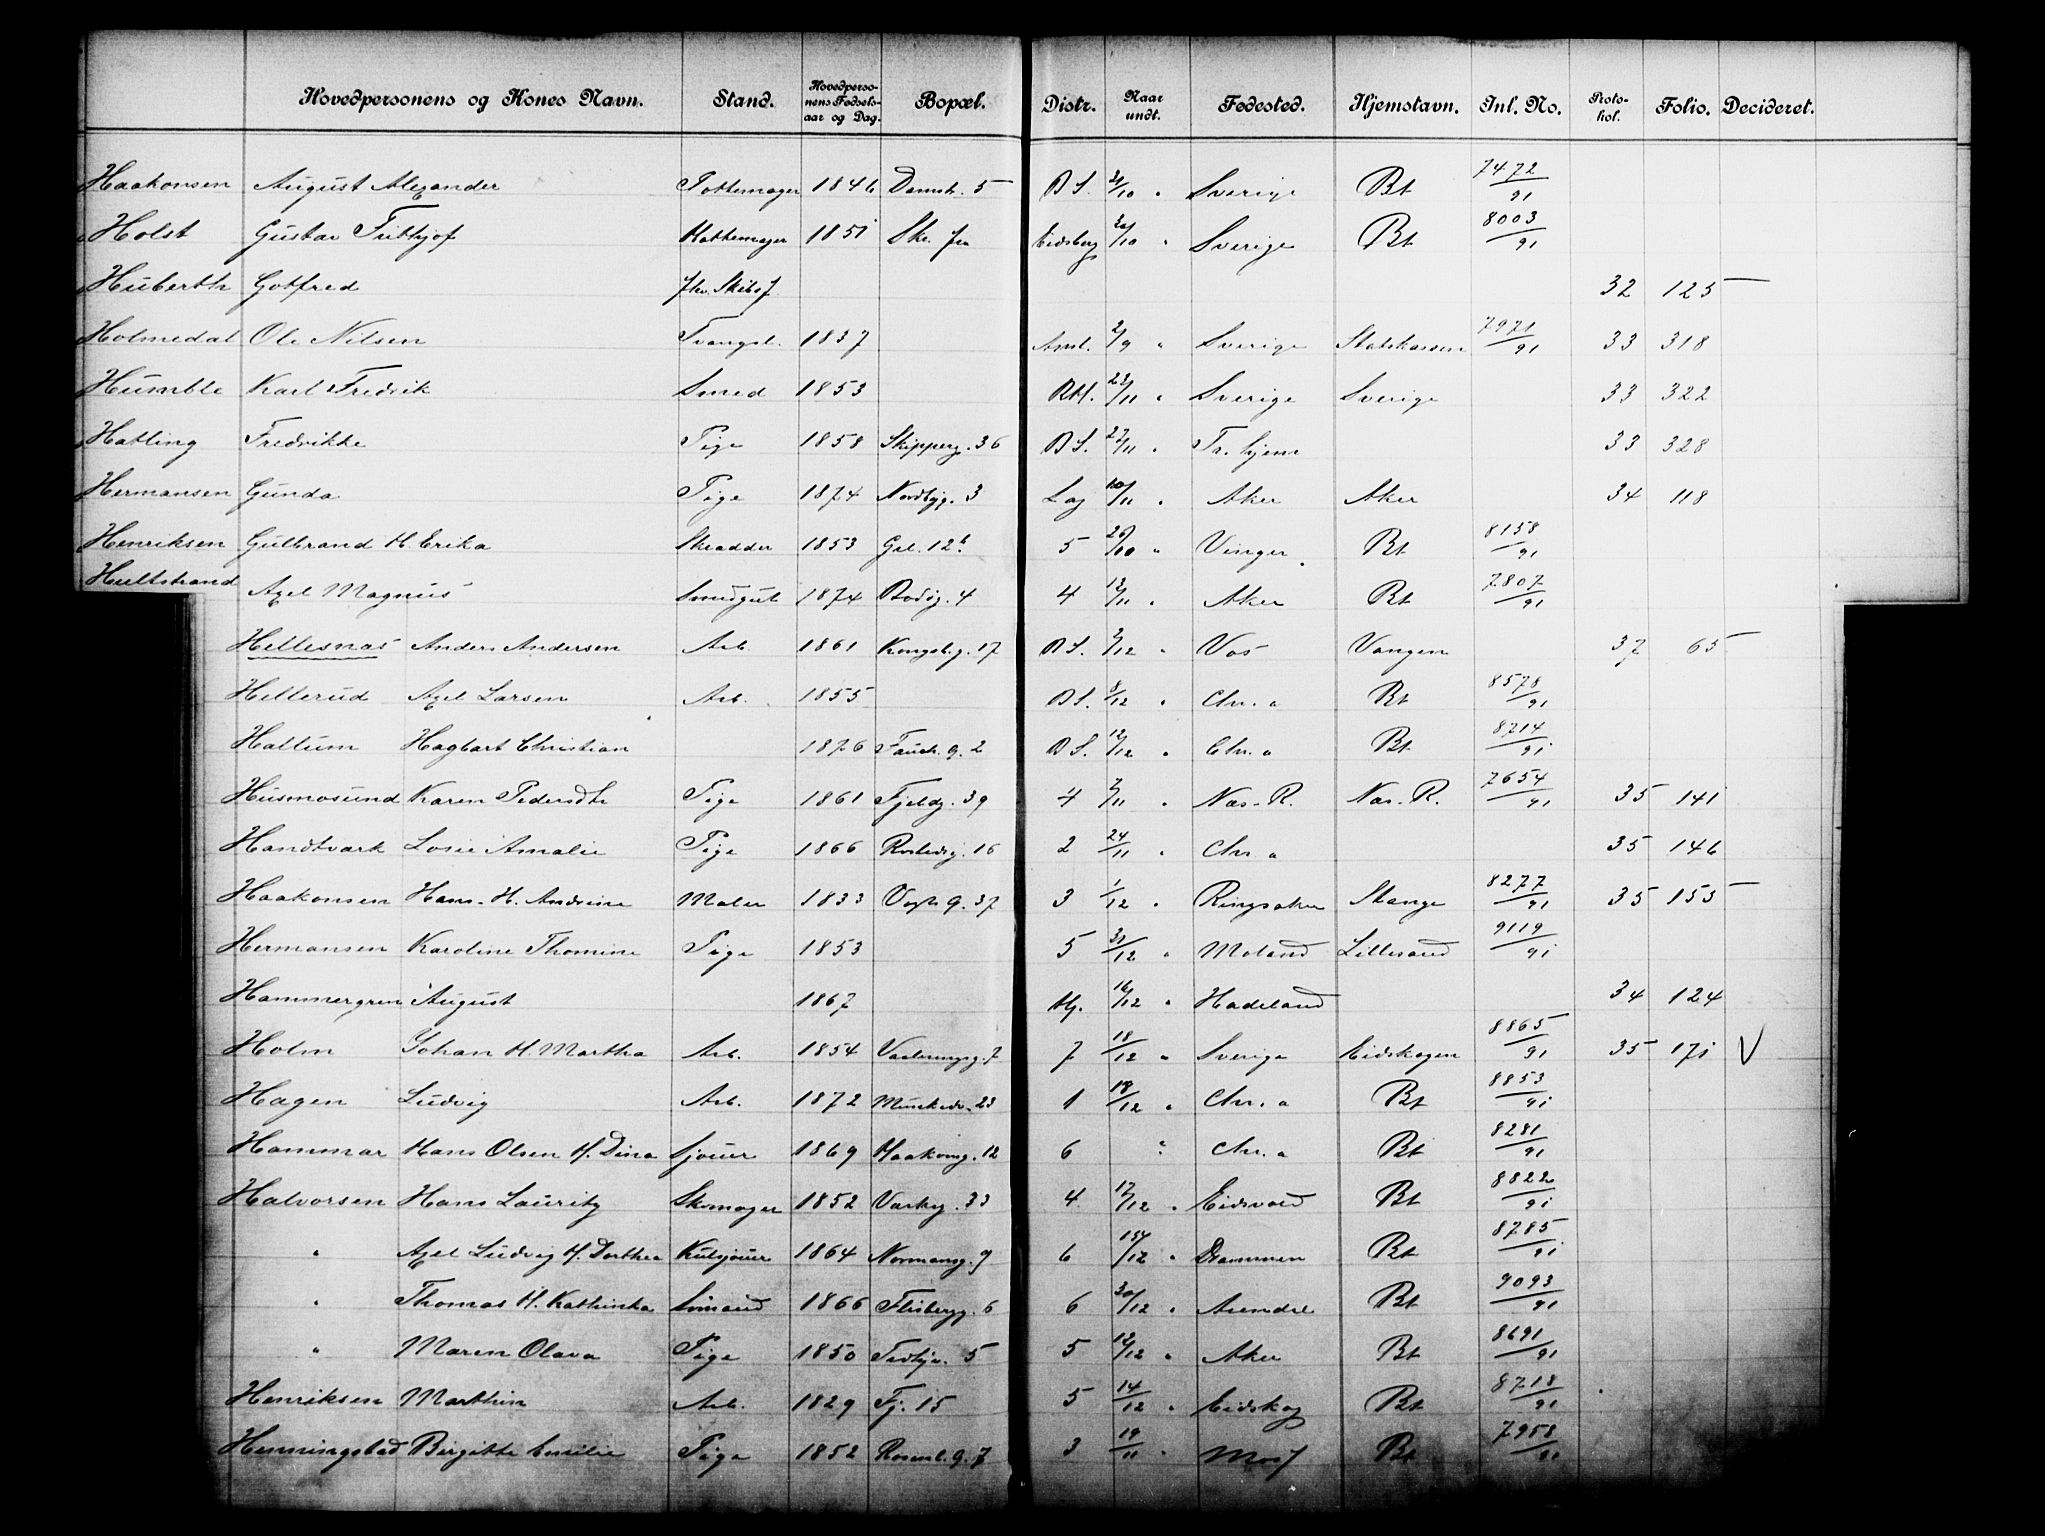 Hovedpersonens og Kones Navn. Stand. Hovedpersonens Fødselsaar og Dag. Bopæl. Distr. Naar undt. Fødested. Hjemstavn. Inl. No. Protokol. Folio. Decideret.
Haakonsen August Alexander Pottemager 1846 Damstr. 5 B S. 2/10 " Sverige Bt 7472/91
Holst Gustav Frithjof 1851 Eidsberg 20/10 " Sverige Bt 8003/91
Huberth Gotfred fhv. Skibsf. 32 125 —
Holmedal Ole Nilsen Tvangsl. 1837 Anst. 2/9 " Sverige Statskassen 7971/91 33 318
Humble Karl Fredrik Smed 1853 RH. 22/11 " Sverige Sverige 33 322
Hatling Fredrikke Pige 1858 Skipperg. 36 B S. 27/11 " Tr. hjem 33 328
Hermansen Gunda Pige 1874 Nordbyg. 3 Log 10/11 " Aker Aker 34 118
Henriksen Gulbrand H. Erika Skrædder 1853 Grl. 12 b. 5 20/10 " Vinger Bt 8158/91
Hultstrand Axel Magnus Smedgut 1874 Bodøg. 4 4 12/11 " Aker Bt 7807/91
Hellesnæs Anders Andersen Arb 1861 Kongsb.g. 17 B S. 2/12 " Vos Vangen 37 65 —
Hellerud Axel Larsen Arb. 1855 B S. 8/12 " Chr.a Bt 8578/91
Hallum Hagbart Christian 1876 Fauch. g. 2 B S. 12/12 " Chr.a Bt 8714/91
Husmosund Karen Pedersdtr Pige 1861 Fjeldg. 39 4 7/11 " Næs-R. Næs-R. 7654/91 35 141
Handtvark Losie Amalie Pige 1866 Rostedsg. 16 2 24/11 " Chr.a 35 146
Haakonsen Hans H. Andrine Maler 1833 Vogts g. 37 3 1/12 " Ringsaker Stange 8277/91 35 153 —
Hermansen Karoline Thomine Pige 1853 5 31/12 " Moland Lillesand 9119/91
Hammergren August 1867 Hj. 16/12 " Hadeland 34 124
Holm Johan H. Martha Arb. 1854 Vaalerengg. 7 7 18/12 " Sverige Eidskogen 8865/91 35 171 V
Hagen Ludvig Arb. 1872 Munkedv. 23 1 18/12 " Chr.a Bt 8853/91
Hammar Hans Olsen H. Dina Sjouer 1869 Haakong. 12 6 " Chr.a Bt 8281/91
Halvorsen Hans Lauritz Skomager 1852 33 4 17/12 " Eidsvold Bt 8822/91
" Axel Ludvig H. Dorthea Kulsjouer 1864 Normansg. 9 6 15/12 " Drammen Bt 8785/91
" Thomas H. Kathinka Sømand 1866 Flisbergg. 6 6 30/12 " Arendal Bt 9093/91
" Maren Olava Pige 1850 5 5 12/12 " Aker Bt 8691/91
Henriksen Marthin Arb. 1829 Fj. 15 5 14/12 " Eidskog Bt 8718/91
Henningstad Birgitte Emilie Pige 1852 Rosenl. g. 7 3 19/11 " Moss Bt 7958/91